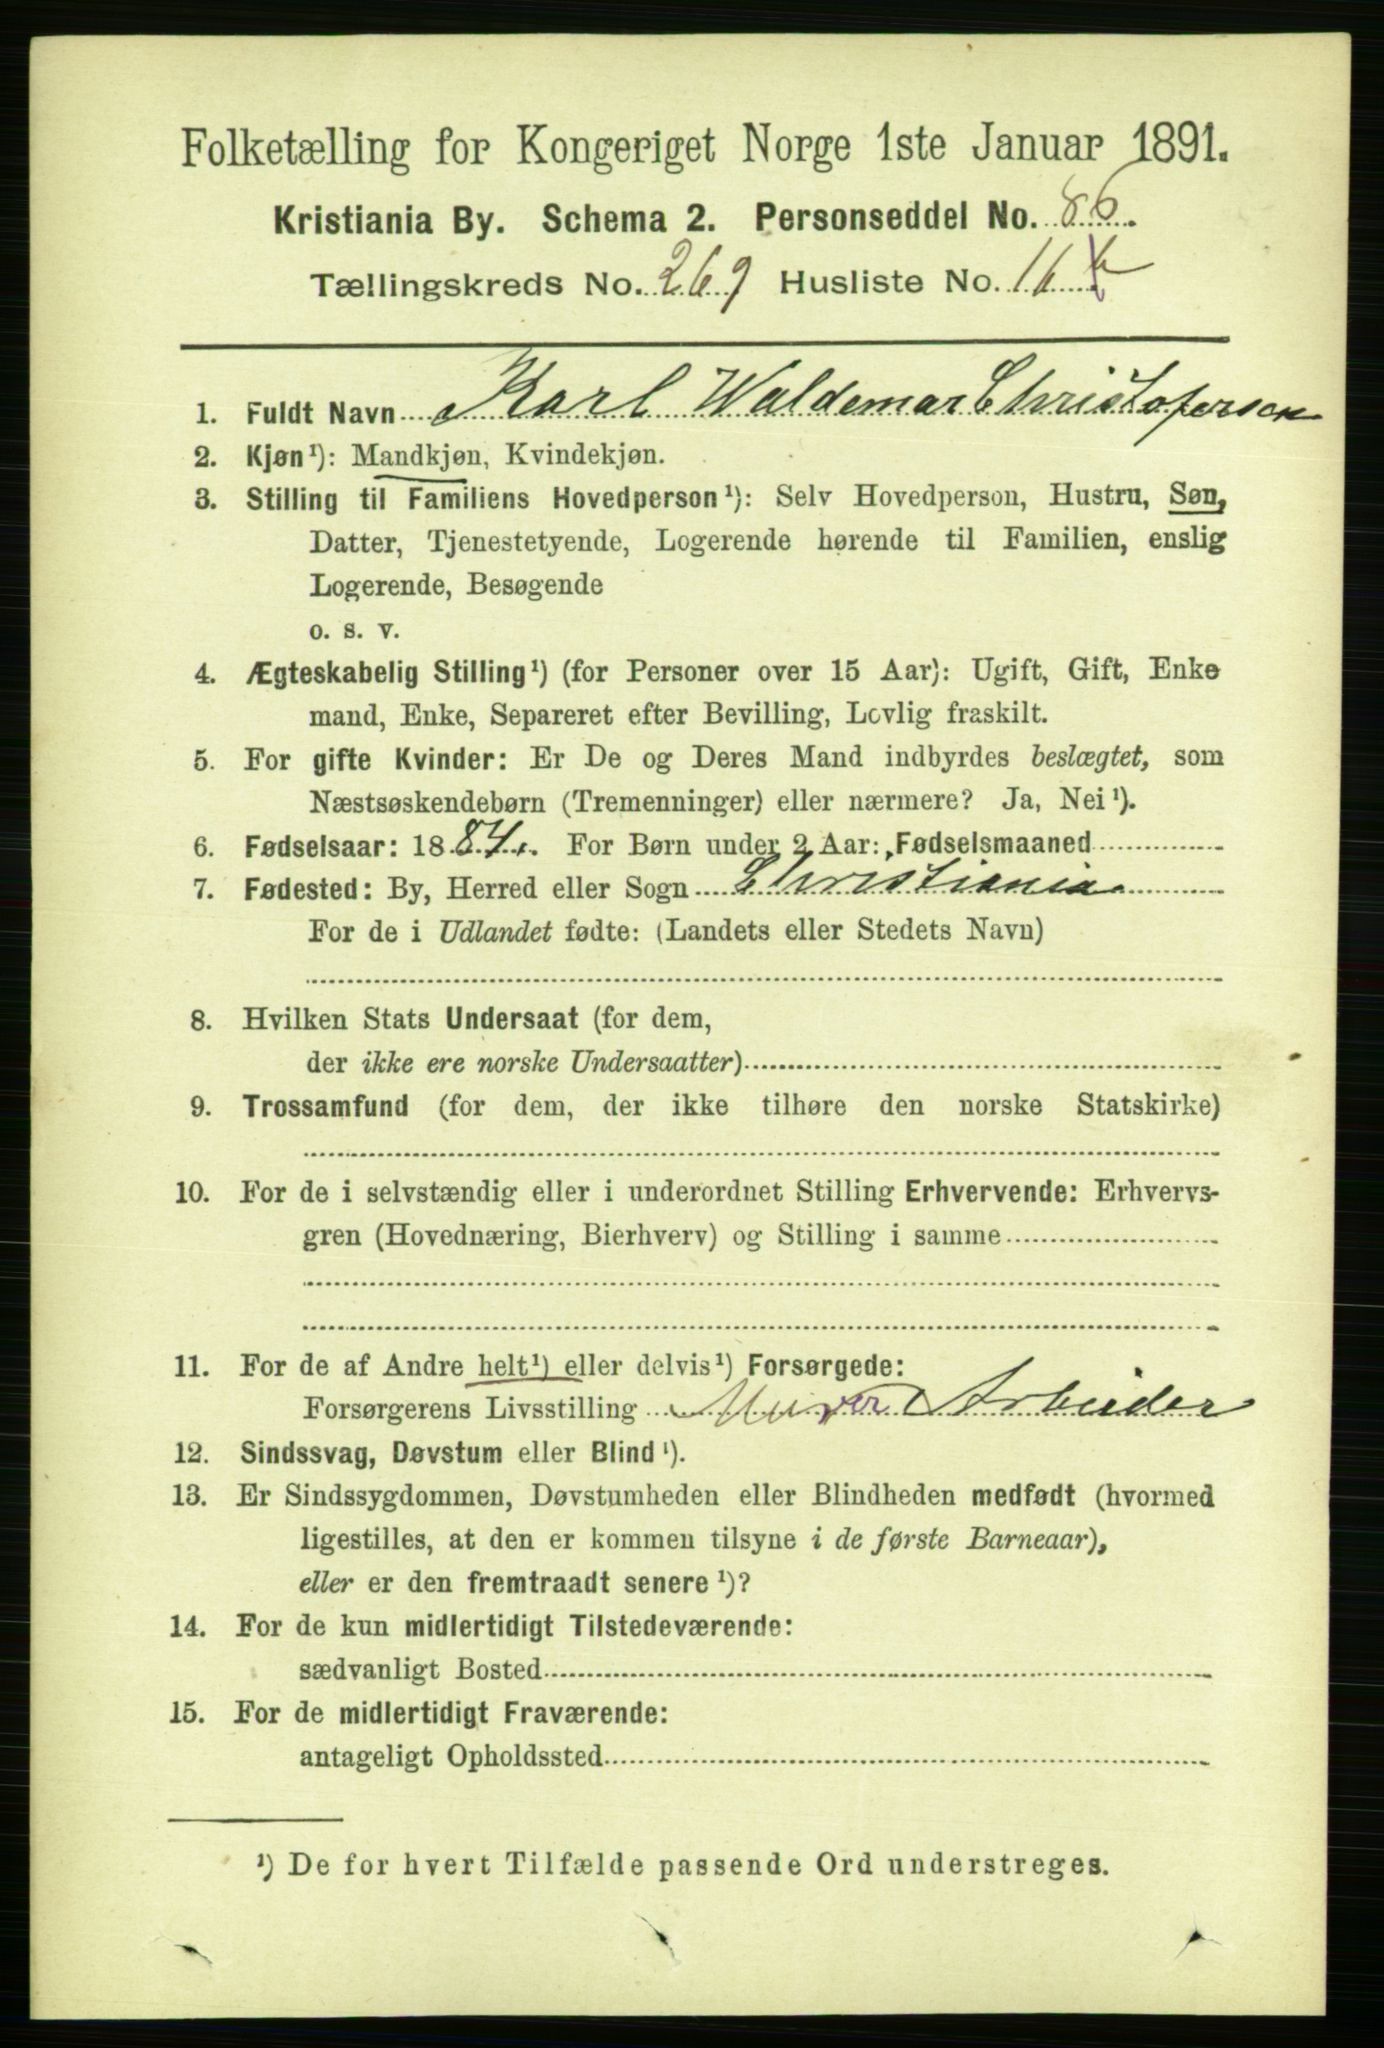 Folketælling for Kongeriget Norge 1ste Januar 1891.
Kristiania By. Schema 2. Personseddel No. 86.
Tællingskreds No. 269 Husliste No. 16
1. Fuldt Navn Karl Waldemar Christofersen
2. Kjøn¹): Mandkjøn, Kvindekjøn.
3. Stilling til Familiens Hovedperson¹): Selv Hovedperson, Hustru, Søn,
Datter, Tjenestetyende, Logerende hørende til Familien, enslig
Logerende, Besøgende
o. s. v.
4. Ægteskabelig Stilling¹) (for Personer over 15 Aar): Ugift, Gift, Enke
mand, Enke, Separeret efter Bevilling, Lovlig fraskilt.
5. For gifte Kvinder: Er De og Deres Mand indbyrdes beslægtet, som
Næstsøskendebørn (Tremenninger) eller nærmere? Ja, Nei¹).
6. Fødselsaar: 1884. For Børn under 2 Aar: Fødselsmaaned
7. Fødested: By, Herred eller Sogn Christiania.
For de i Udlandet fødte: (Landets eller Stedets Navn)
8. Hvilken Stats Undersaat (for dem,
der ikke ere norske Undersaatter)
9. Trossamfund (for dem, der ikke tilhøre den norske Statskirke)
10. For de i selvstændig eller i underordnet Stilling Erhvervende: Erhvervs-
gren (Hovednæring, Bierhverv) og Stilling i samme
11. For de af Andre helt¹) eller delvis¹) Forsørgede:
Forsørgerens Livsstilling Murer Arbeider
12. Sindssvag, Døvstum eller Blind¹).
13. Er Sindssygdommen, Døvstumheden eller Blindheden medfødt (hvormed
ligestilles, at den er kommen tilsyne i de første Barneaar),
eller er den fremtraadt senere¹)?
14. For de kun midlertidigt Tilstedeværende:
sædvanligt Bosted
15. For de midlertidigt Fraværende:
antageligt Opholdssted
¹) De for hvert Tilfælde passende Ord understreges.